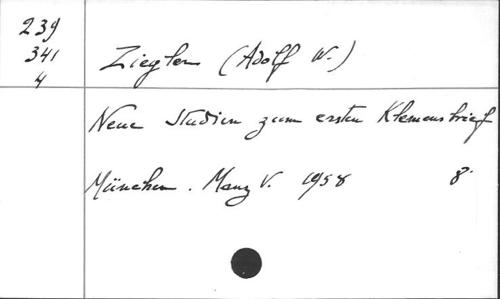 239
341
4
Ziegler (Adolf W.)
Neue Studien zum ersten Klemensbrief
München. Manz V. 1958 8°